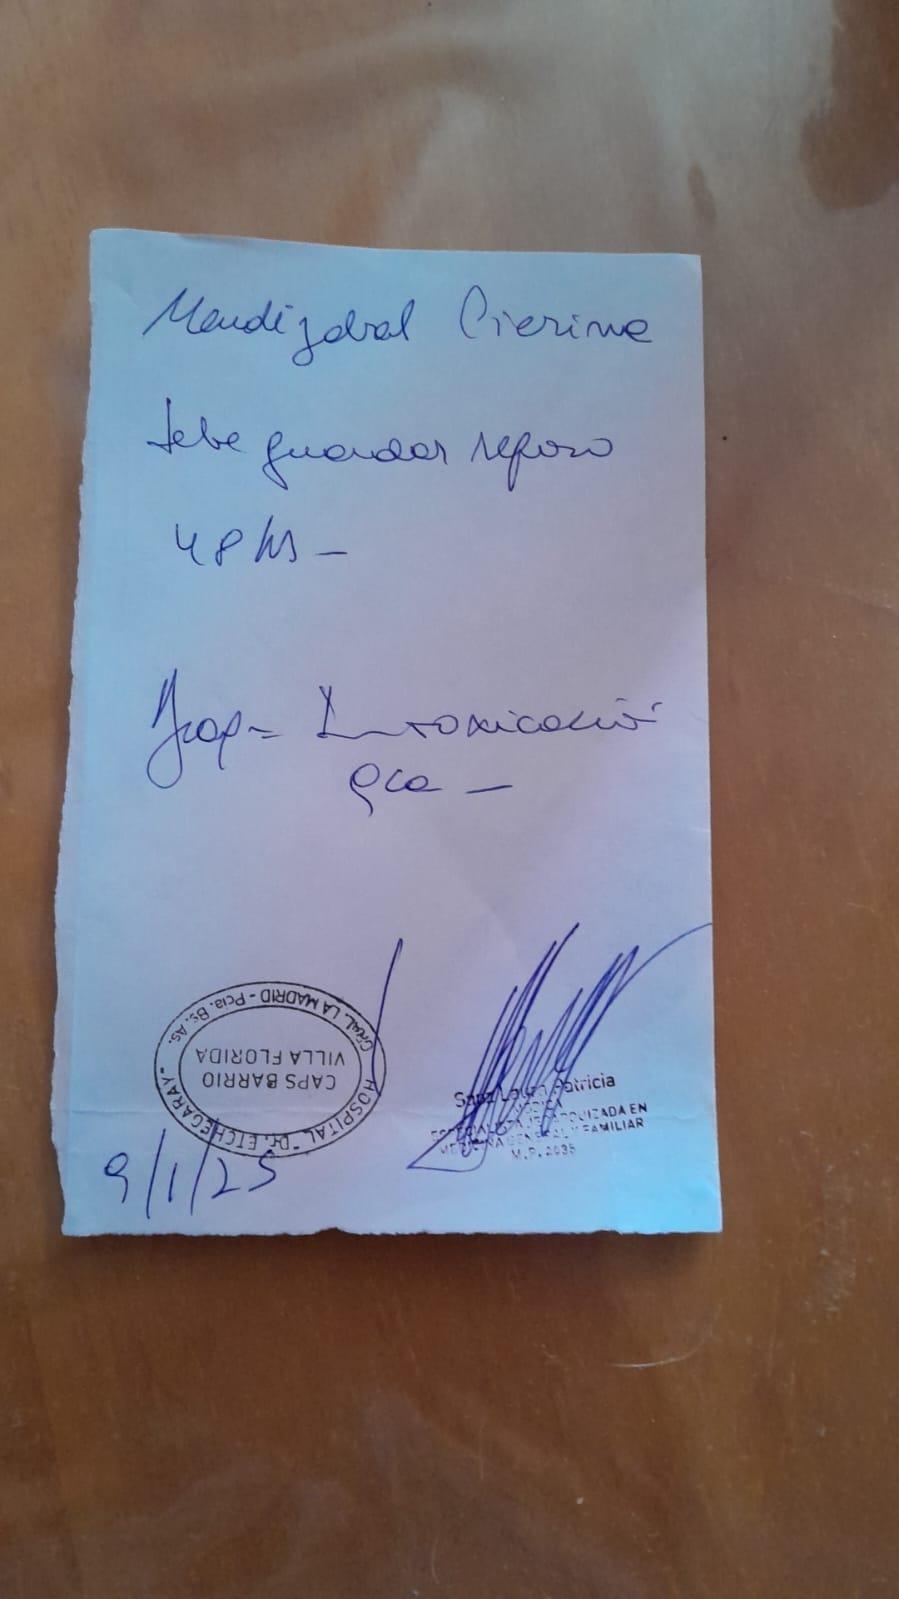 Mendizabal Pierina
debe guardar reposo
48 hs -
Diag = Intoxicación
gca -
HOSPITAL "Dr. ETCHEGARAY"
GRAL. LA MADRID - Pcia. Bs. As.
CAPS BARRIO
VILLA FLORIDA
9/1/25
Patricia
ESPECIALISTA JERARQUIZADA EN
MEDICINA GENERAL Y FAMILIAR
M.P.